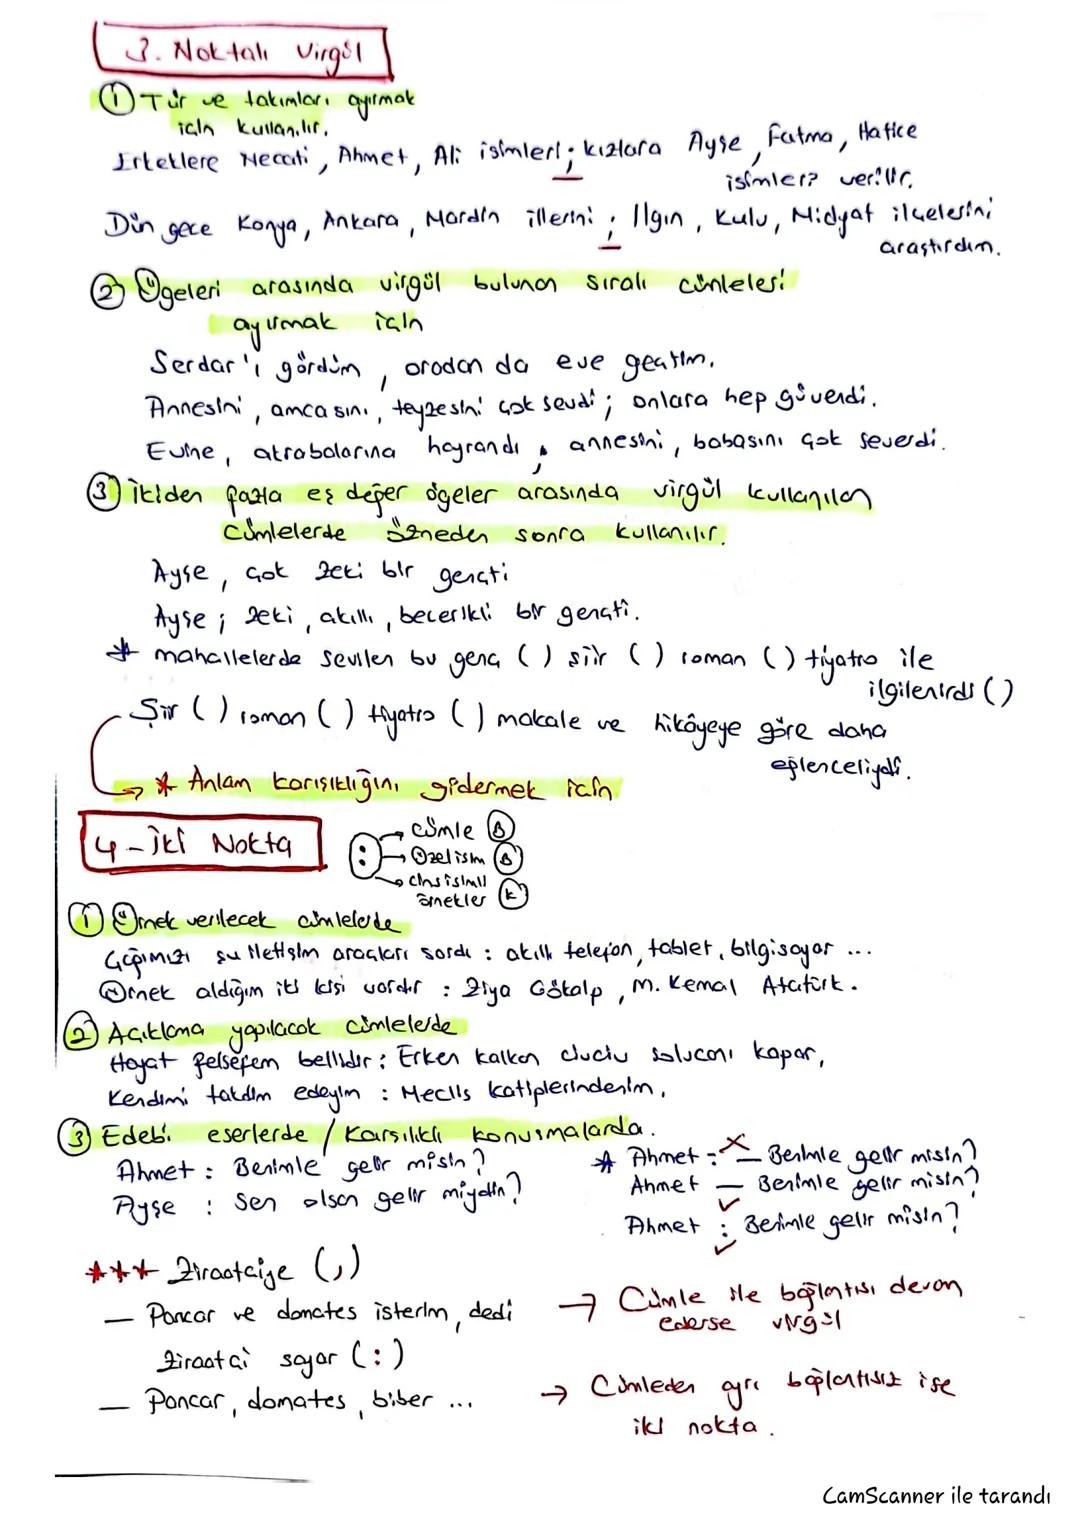 3. Noktalı Virgül
① Tür ve takımları ayırmak
için kullanılır.
Erkeklere Necati, Ahmet, Ali isimleri; kızlara Ayşe, Fatma, Hatice
isimleri verilir.
Dün gece Konya, Ankara, Mardin illerini; Ilgın, Kulu, Midyat ilçelerini
araştırdım.
② Ögeleri arasında virgül bulunan sıralı cümleleri
ayırmak için
Serdar'ı gördüm, oradan da eve geçtim.
Annesini, amcasını, teyzesini çok sevdi; onlara hep güvendi.
Evine, akrabalarına hayrandı; annesini, babasını çok severdi.
③ İkiden fazla eş değer ögeler arasında virgül kullanılan
cümlelerde özneden sonra kullanılır.
Ayşe, çok zeki bir gençti
Ayşe; zeki, akıllı, becerikli bir gençti.
* mahallelerde sevilen bu genç ( ) şiir ( ) roman ( ) tiyatro ile
ilgilenirdi ( )
Şiir ( ) roman ( ) tiyatro ( ) makale ve hikâyeye göre daha
eğlenceliydi.
* Anlam karışıklığını gidermek için
4- İki Nokta
: → cümle (B)
→ Özel isim (B)
→ cins isimli
örnekler (K)
① Örnek verilecek cümlelerde
Çağımızı şu iletişim araçları sardı : akıllı telefon, tablet, bilgisayar ...
Örnek aldığım iki kişi vardır : Ziya Gökalp, M. Kemal Atatürk.
② Açıklama yapılacak cümlelerde
Hayat felsefem bellidir : Erken kalkan civciv solucanı kapar.
Kendimi takdim edeyim : Meclis katiplerindenim.
③ Edebi eserlerde / Karşılıklı konuşmalarda.
Ahmet : Benimle gelir misin?
Ayşe : Sen olsan gelir miydin?
* Ahmet : — Benimle gelir misin?
Ahmet — Benimle gelir misin?
Ahmet : Benimle gelir misin?
*** Ziraatçiye (,)
— Pancar ve domates isterim, dedi
→ Cümle ile bağlantısı devam
ederse virgül
Ziraatçi sayar (:)
— Pancar, domates, biber ...
→ Cümleden ayrı bağlantısız ise
iki nokta.
CamScanner ile tarandı